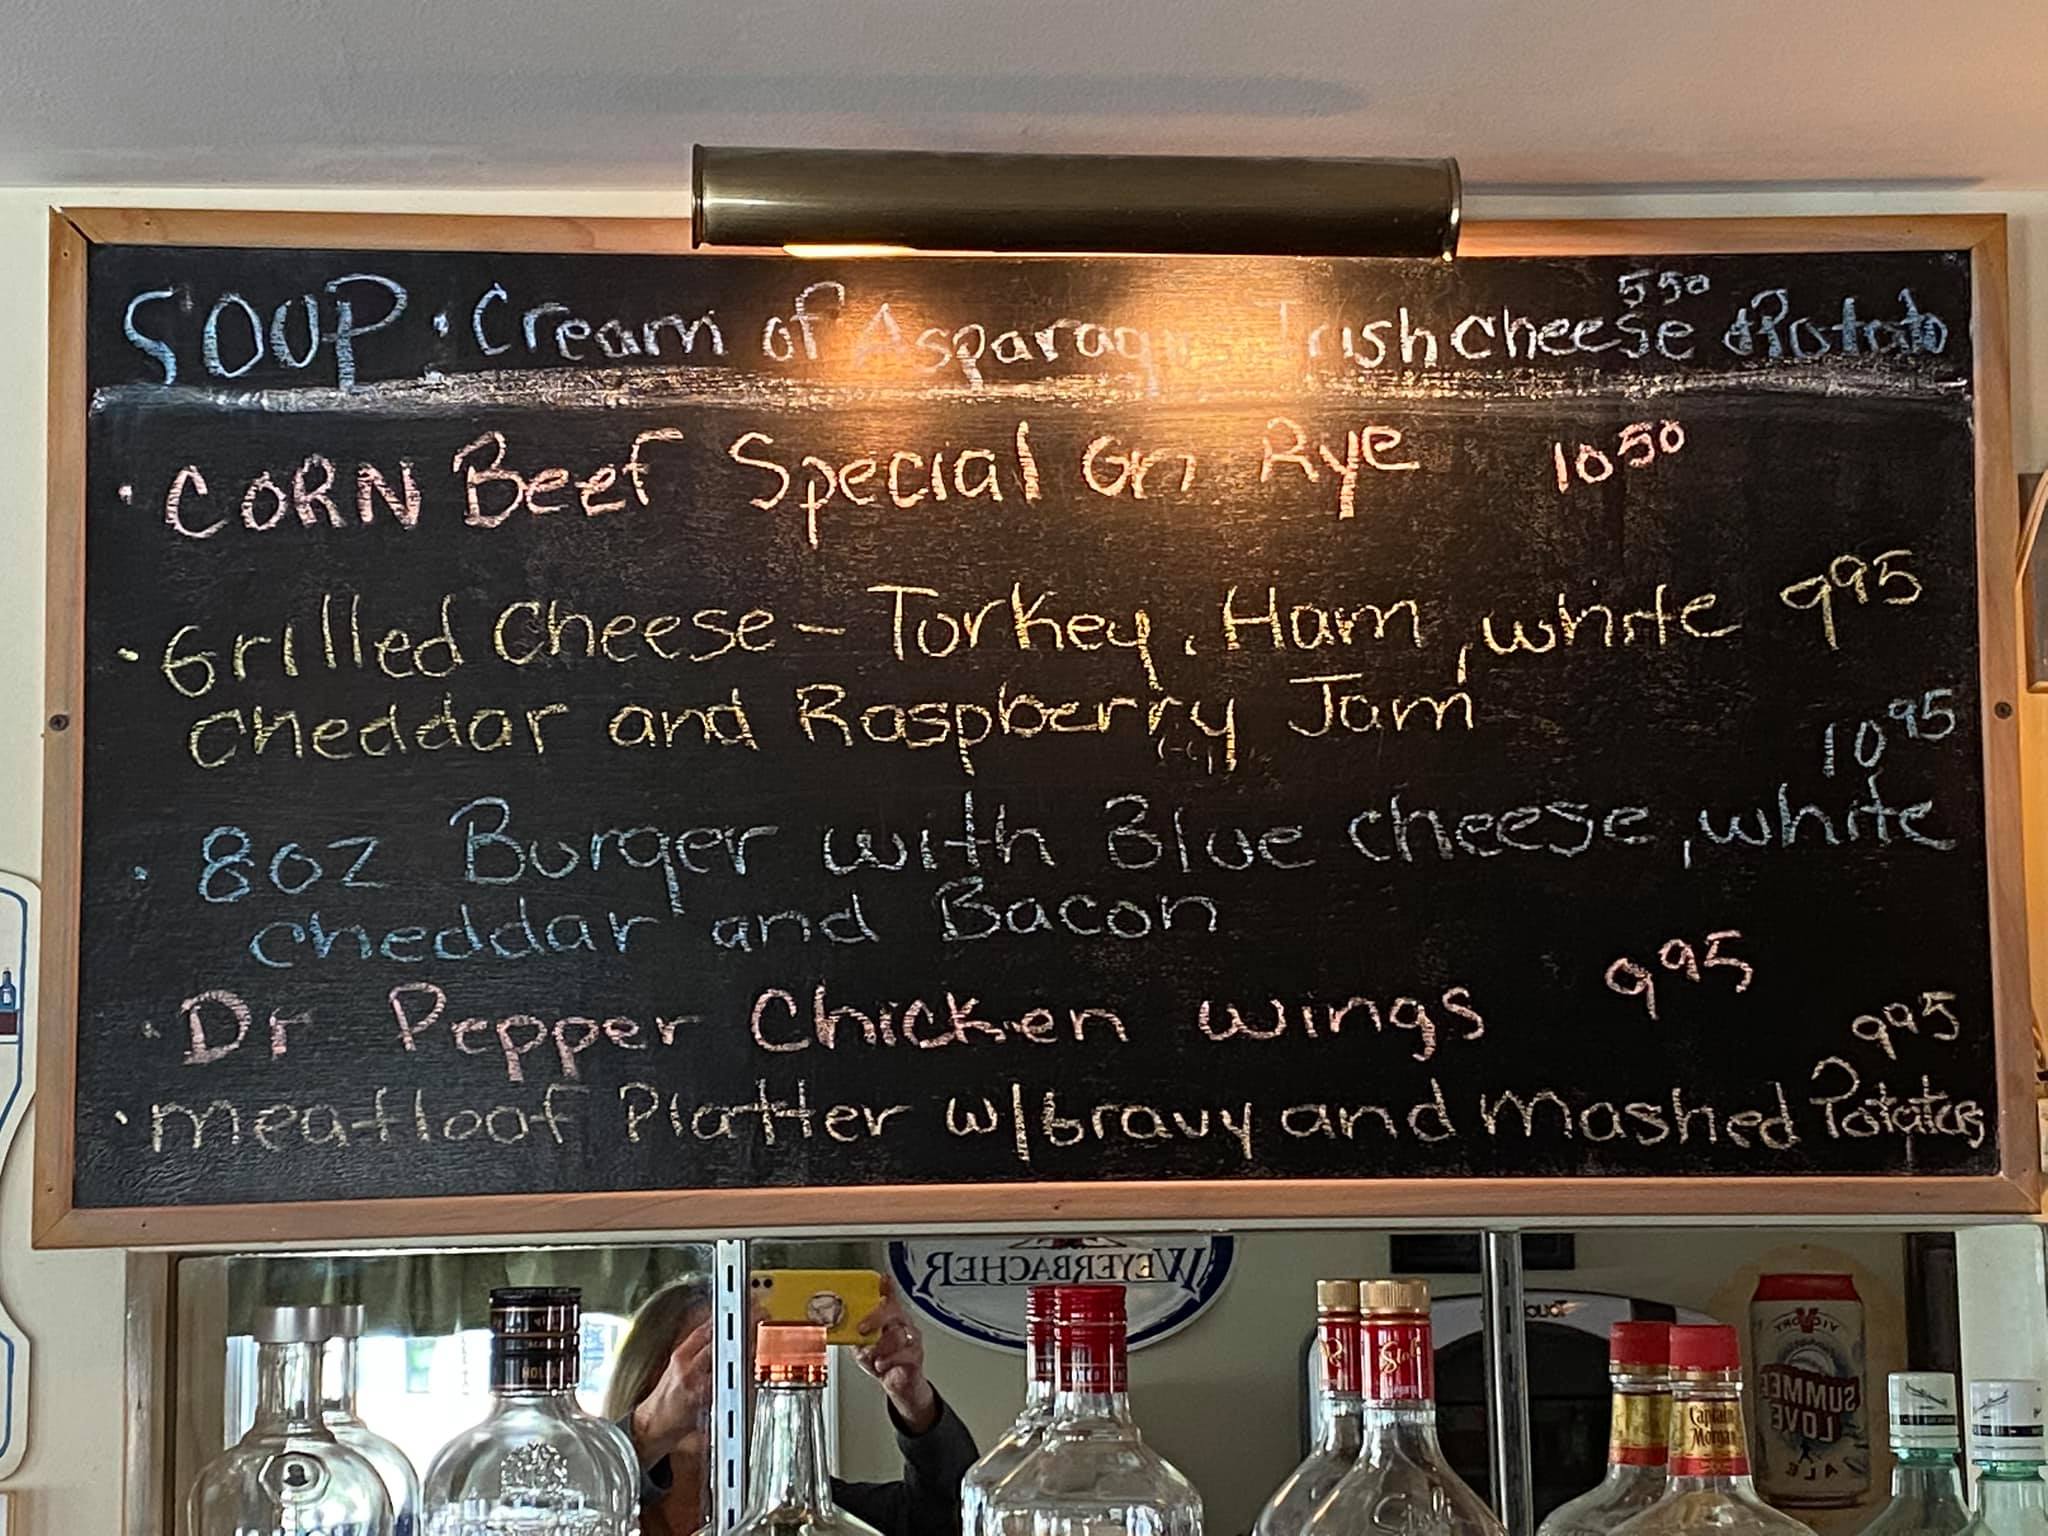 550
SOUP · Cream of Asparagu Irish Cheese Potato
· CORN Beef Special on Rye 10 50
· Grilled Cheese - Torkey, Ham, white 9 95
Cheddar and Raspberry Jam
10 95
· 8oz Burger with Blue cheese, white
cheddar and Bacon
· Dr Pepper Chicken wings 9 95
9 95
· meatloaf Platter w/bravy and mashed Potatoes
WEYERBACHER
VICTORY
SUMMER
LOVE
ALE
Captain
Morgan